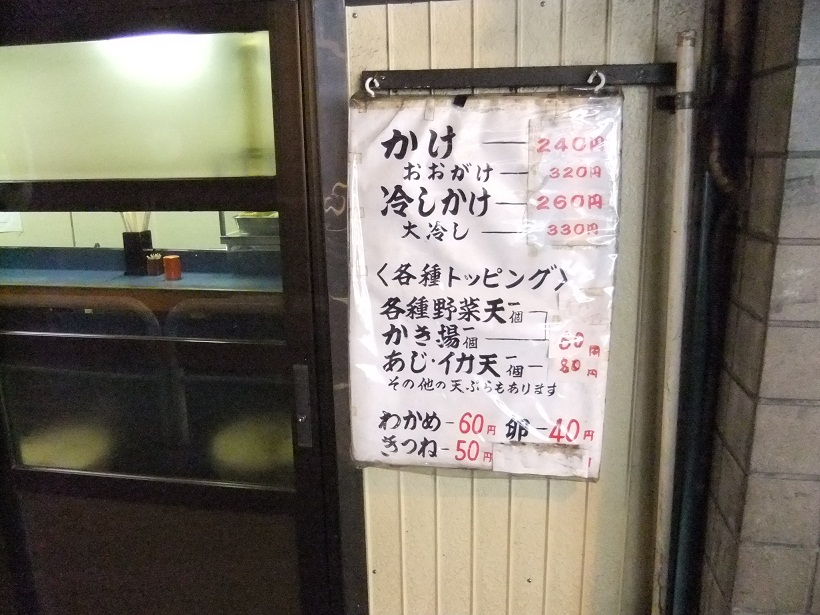 かけ ― 240円
おおがけ ― 320円
冷しかけ ― 260円
大冷し ― 330円
〈各種トッピング〉
各種野菜天一個
かき揚一個 ― 60円
あじ・イカ天一個 ― 80円
その他の天ぷらもあります
わかめ ― 60円 卵 ― 40円
きつね ― 50円